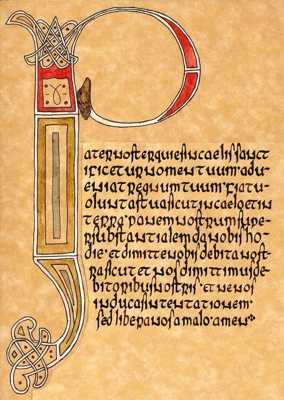 P
aternosterquiesincaelissanct
ificeturnomentuumadu-
eniatregnumtuumfiatu
oluntastuasicutincaeloetin
terrapanemnostrumsupe-
rsubstantialemdanobisho-
die·etdimittenobisdebitanost-
rasicutetnosdimittimusde-
bitoribusnostris·etnenos
inducasintentationem
sedliberanosamalo·amen